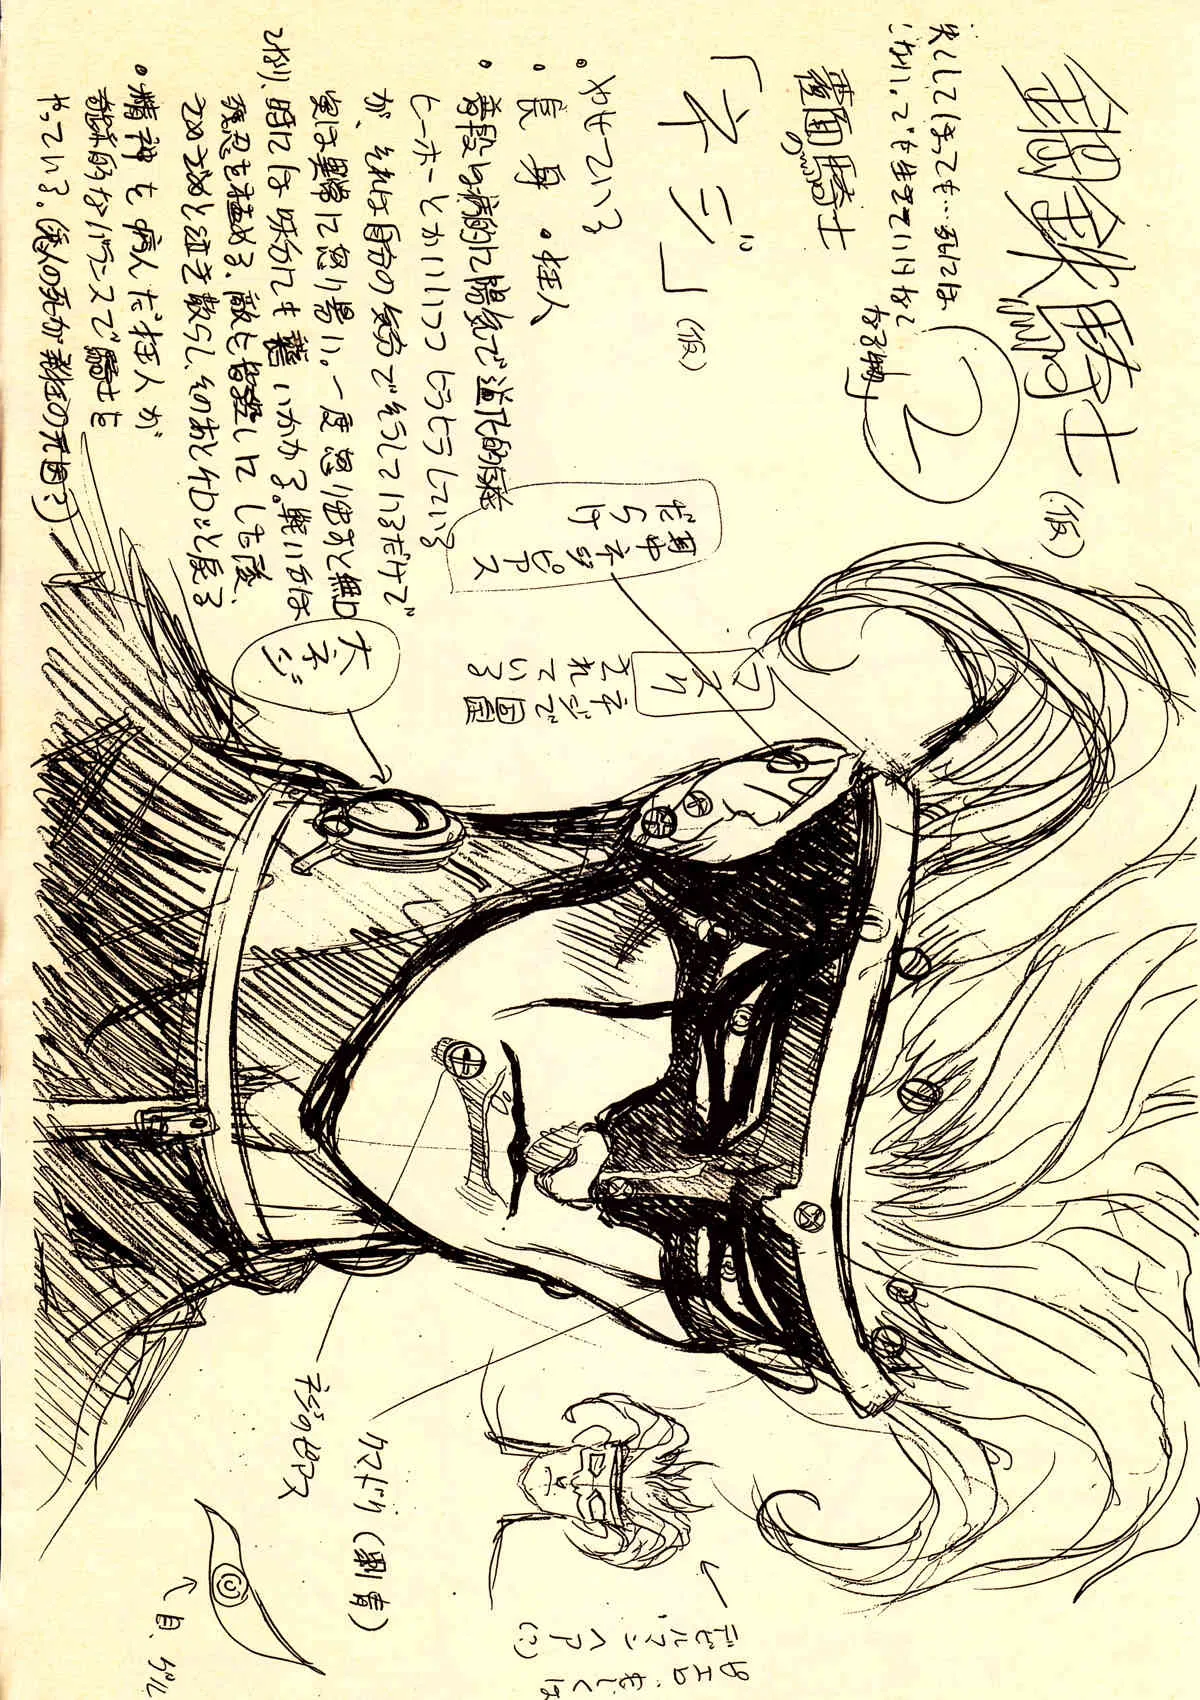 鋼鉄騎士(仮)
2
失くしてしまっても…死んでは
いない。でも生きてはいけなくて
なる瞬間
復面騎士
「ネジ」(仮)
・やせている
・長身 ・狂人
・普段は病的に陽気で道化的
ヒーホーとかいいつつヒラヒラしている
が、それは自分の気分でそうしているだけで
実は異常に怒り易い。一度怒り出すと
時には味方にも襲いかかる。戦いかたは
残忍を極める、敵を皆殺しにした後、
泣き散らし、そのあとケロッと戻る
・精神を病んだ狂人が
奇跡的なバランスで騎士を
やっている。(恋人の死が発狂の原因?)
耳中ネジピアス
だらけ
マスク
ネジで固定
されている
大ネジ
ネジのピアス
クマドリ(刺青)
ピエロもしくは
デビルマンヘア
(?)
目、グル